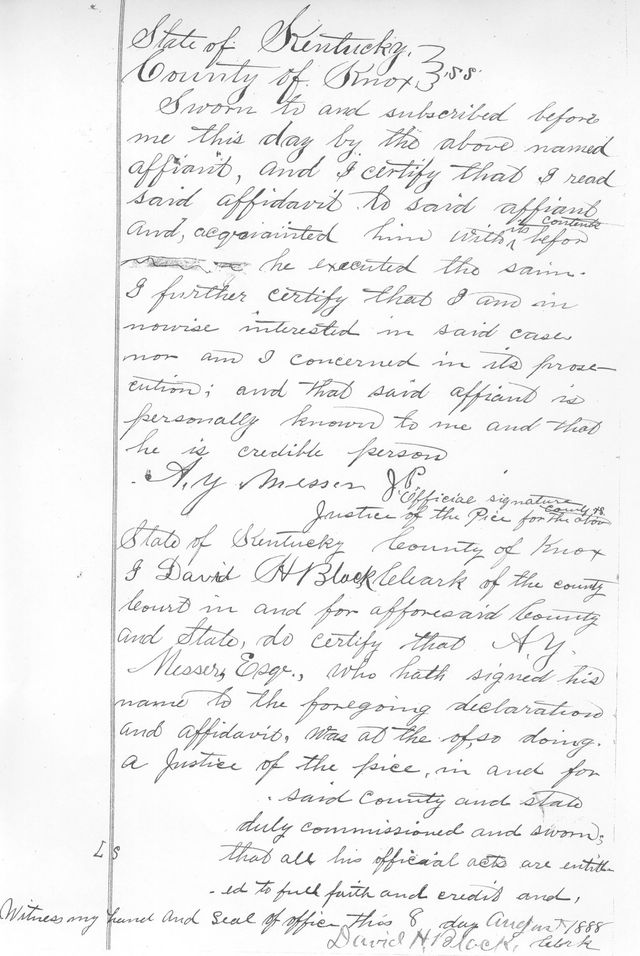 State of Kentucky,
County of Knox, } ss.
Sworn to and subscribed before
me this day by the above named
affiant, and I certify that I read
said affidavit to said affiant
and, acquainted him with its contents befor
he executed the saim.
I further certify that I am in
nowise interested in said case
nor am I concerned in its prose-
cution; and that said affiant is
personally known to me and that
he is credible person
A. Y Messer J P
Official signature
Justice of the Pice for the abov County &S.
State of Kentucky County of Knox
I David H Black Cleark of the county
Court in and for afforesaid County
and State, do certify that A Y.
Messer, Esqr., who hath signed his
name to the foregoing declaration
and affidavit, was at the of, so doing.
a Justice of the pice, in and for
said County and state
duly commissioned and sworn;
L S that all his official acts are entitl-
ed to full faith and credit and,
Witness my hand and seal of office this 8 day August 1888
David H. Black, Clerk